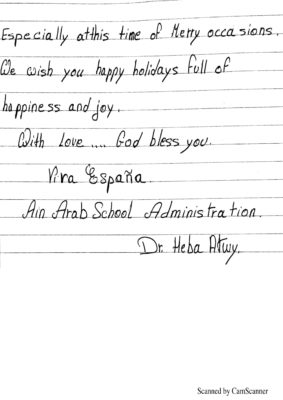 Especially atthis time of Merry occasions.
We wish you happy holidays full of
happiness and joy.
With love .... God bless you.
Viva España.
Ain Arab School Administration.
Dr. Heba Atwy.
Scanned by CamScanner